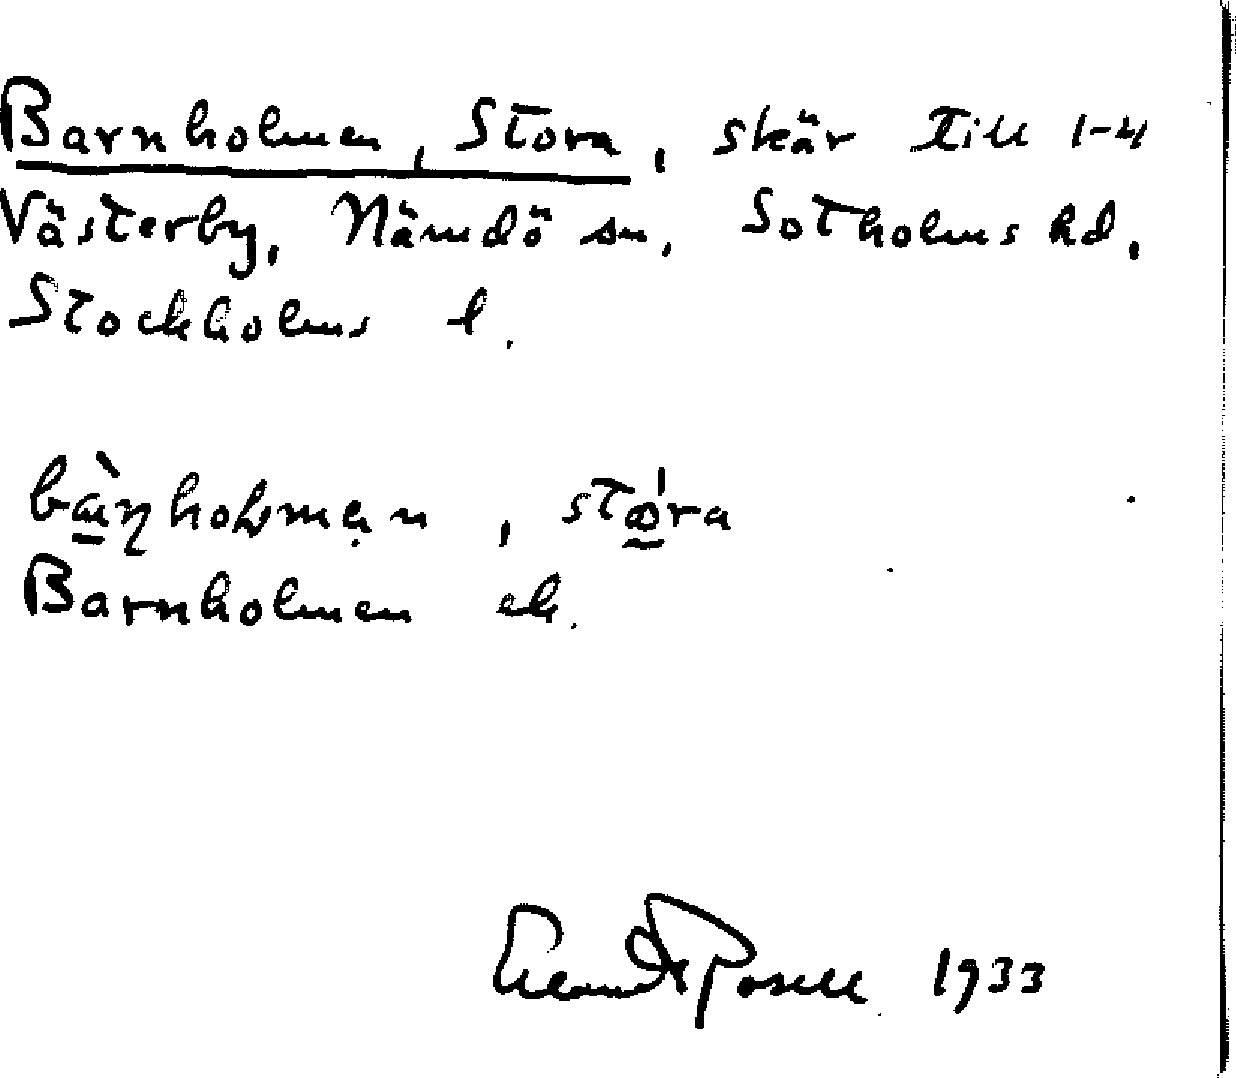 Barnholmen, Stora, skär till 1-4
Västerby, Nämdö sn, Sotholms hd,
Stockholms l.
stora
Barnholmen ek.
Rosell 1933